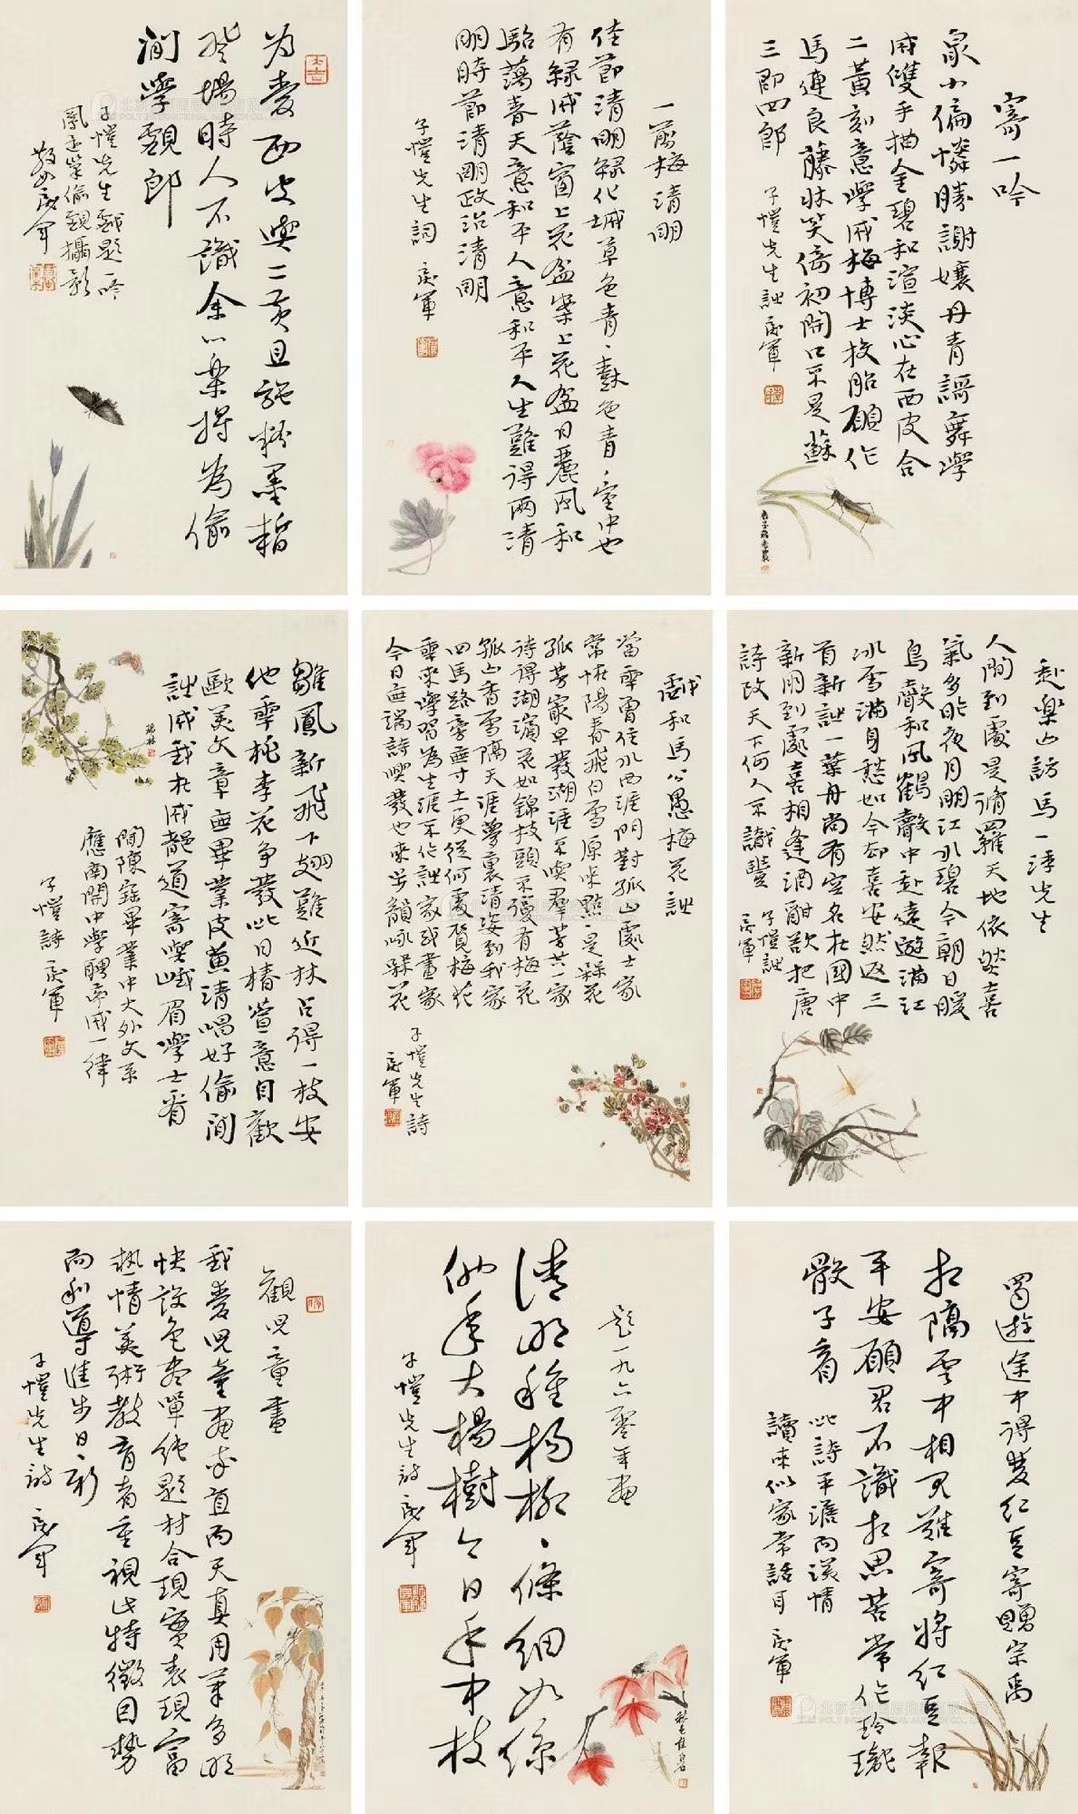 寄一吟
最小偏憐勝謝孃丹青謌舞學
成雙手描金碧和渲淡心在西皮合
二黃刻意學成梅博士投胎願作
馬連良藤牀笑倚初開口不是蘇
三即四郎
子愷先生詠 慶軍
一剪梅清明
佳節清明綠化城草色青、樹色青、室中也
有綠成蔭窗上花盆案上花盆日麗風和
駘蕩春天意和平人意和平人生難得兩清
明時節清明政治清明
子愷先生詞 慶軍
為愛西皮與二黃且施粉墨暫
登場時人不識余心樂將為偷
閒學郎
子愷先生戲題一吟
偷觀攝影
慶軍
赴樂山訪馬一浮先生
人間到處是脩羅天地依然喜
氣多昨夜月明江水碧今朝日暖
鳥聲和風鶴聲中赴遠遊滿江
冰雪滿身愁如今却喜安然返三
首新詠一葉舟尚有空名在國中
新朋到處喜相逢酒酣歡把唐
詩改天下何人不識豐
子愷詠
慶軍
戲和馬公愚梅花詠
當年曾住水西涯門對孤山處士家
常恠陽春飛白雪原來點、是槑花
孤芳最早發湖涯不與群芳共一家
待得湖濱花如錦枝頭不復有梅花
孤山香雪隔天涯夢裏清姿到我家
四馬路旁無寸土更從何處覓梅花
年來學習為生涯不作詠家或畫家
今日無端詩興發也來步韻咏槑花
子愷先生詩
慶軍
雛鳳新飛下翅難近林占得一枝安
他年桃李花爭發此日椿萱意自歡
歐美文章無畢業皮黃清唱好偷閒
詠成我在成都道寄與峨眉學士看
聞陳寶畢業中大外文系
應南開中學聘而成一律
子愷詩 慶軍
蜀遊途中得雙紅豆寄贈宗禹
相隔雲中相見難寄將紅豆報
平安願君不識相思苦常作玲瓏
骰子看
此詩平澹而情
讀來似家常話耳 慶軍
題一九六零年畫
清明種楊柳、條細如絲
他年大楊樹今日手中枝
子愷先生詩 慶軍
觀兒童畫
我愛兒童畫率直而天真用筆多明
快設色盡單純題材合現實表現富
熱情美術教育者重視此特徵因勢
而利導進步日、新
子愷先生詩 慶軍